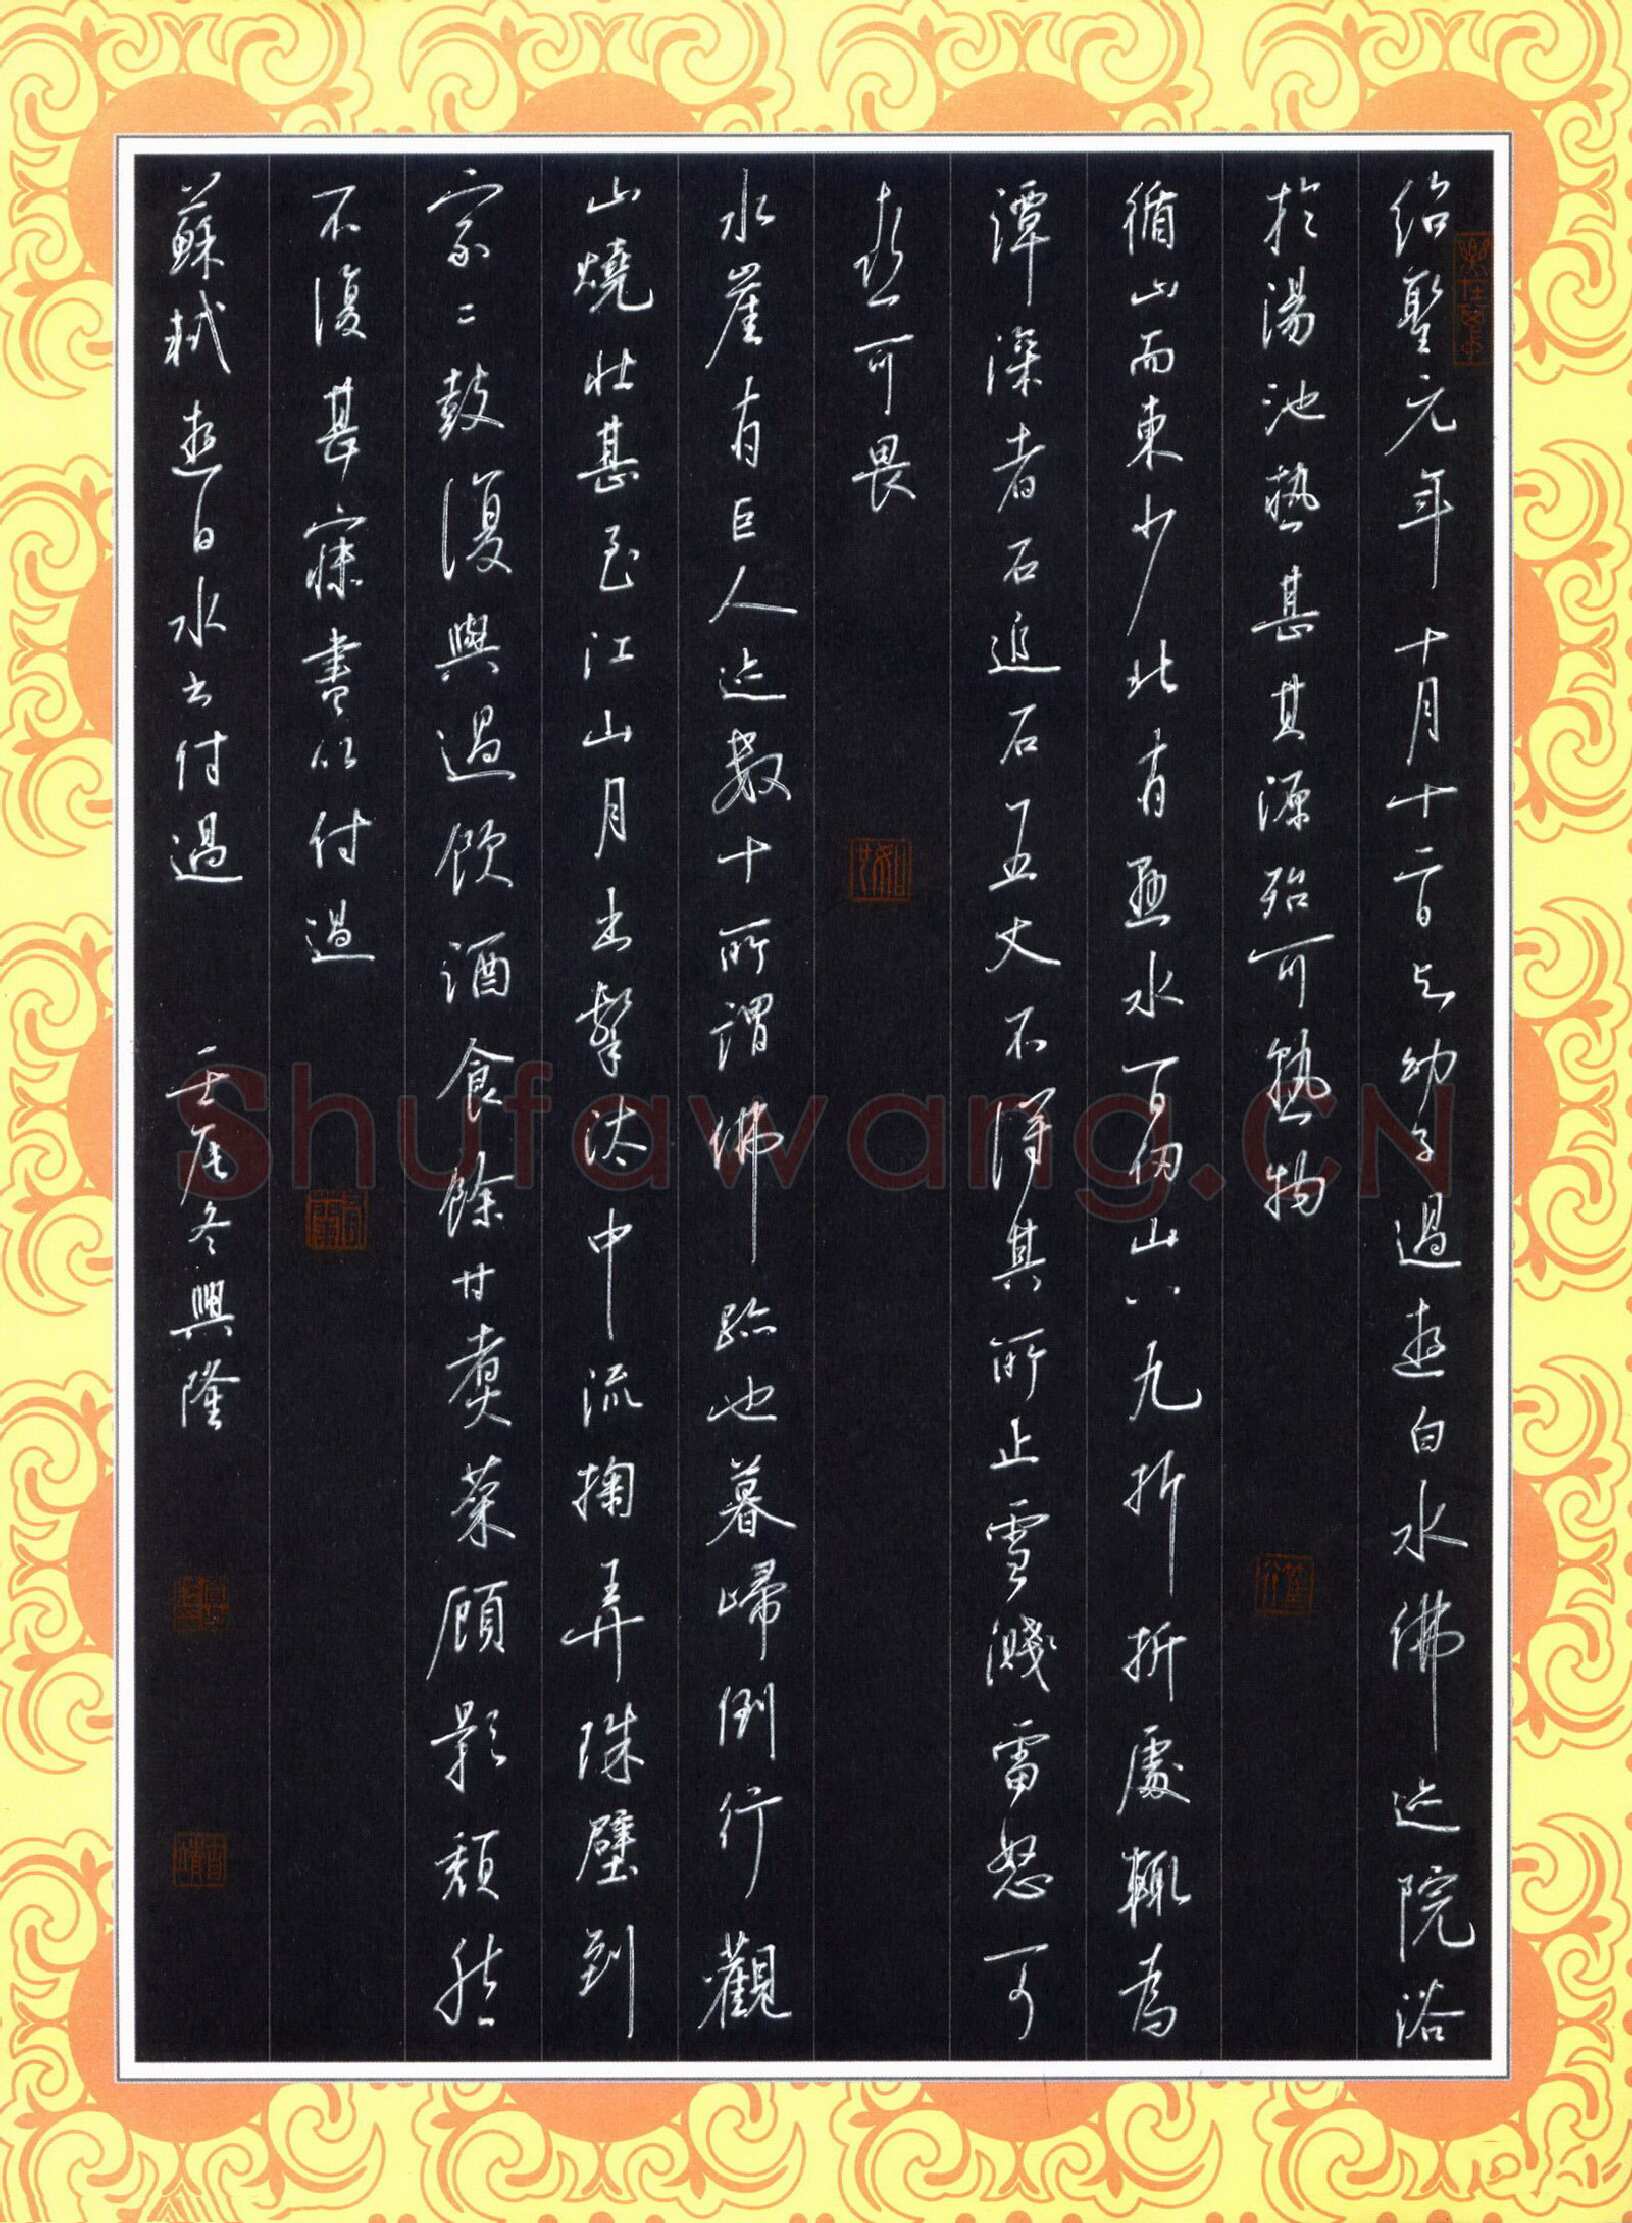 紹聖元年十月十二日与幼子過遊白水佛迹院浴
於湯池熱甚其源殆可熟物
循山而東少北有懸水百仞山八九折折處輒為
潭深者石追石五丈不得其所止雪濺雷怒可
喜可畏
水崖有巨人迹數十所謂佛跡也暮歸倒行觀
山燒壯甚至江山月出擊汰中流掬弄珠璧到
家二鼓復與過飲酒食餘甘煮菜顧影頹然
不復甚寐書以付過
蘇軾遊白水书付過 壬辰冬興隆
Shufawang.CN